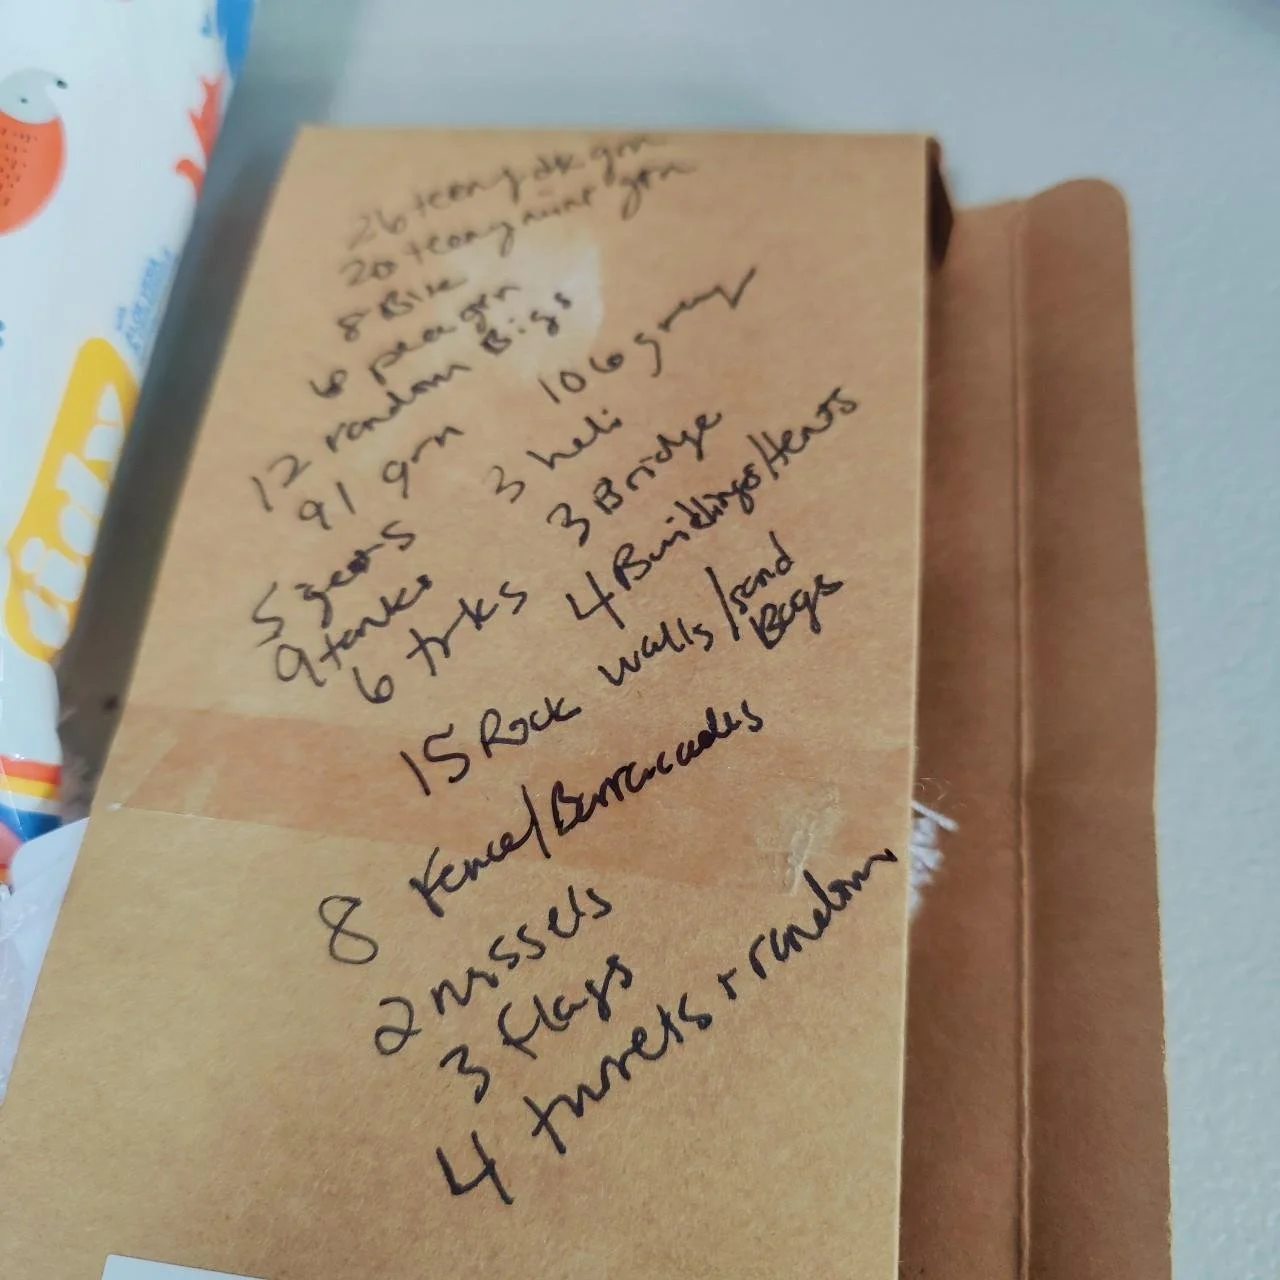 26 teeny dk grn
20 teeny mint grn
8 Bike
6 pea grn
12 random Bigs
91 grn 106 gray
5 jeeps 3 heli
9 tanks 3 Bridge
6 trks 4 Buildings/tents
15 Rock walls/sand
Bags
8 Fence/Barracades
2 missels
3 flags
4 turrets + random